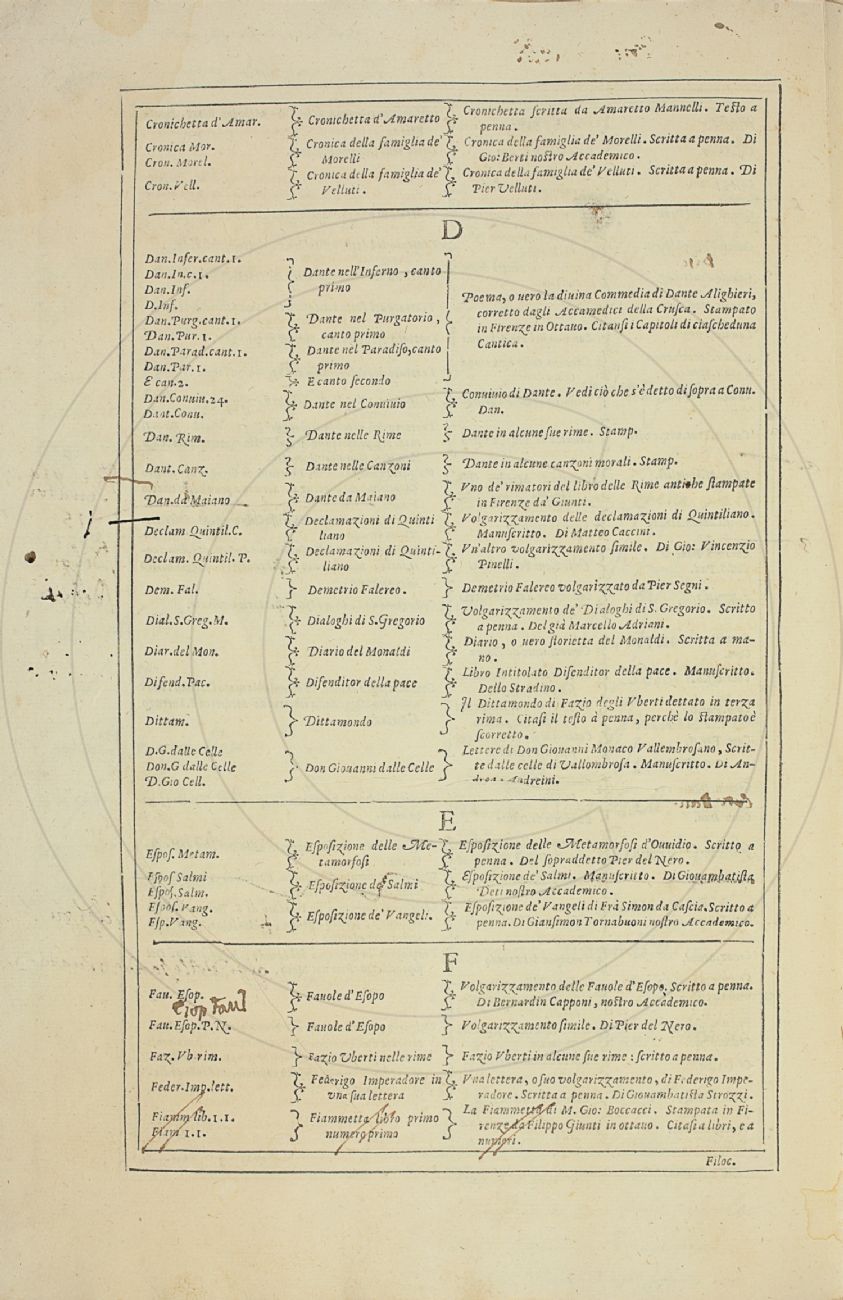 Cronichetta d'Amar. Cronichetta d'Amaretto Cronichetta ſcritta da Amaretto Mannelli. Teſto a
penna.
Cronica Mor. Cronica della famiglia de' Cronica della famiglia de' Morelli. Scritta a penna. Di
Cron. Morel. Morelli Gio: Berti noſtro Accademico.
Cron. Vell. Cronica della famiglia de' Cronica della famiglia de' Velluti. Scritta a penna. Di
Velluti. Pier Velluti.
D
Dan.Infer.cant.1.
Dan.In.c.1. Dante nell'Inferno, canto
Dan.Inf. primo
D.Inf.
Dan.Purg.cant.1. Dante nel Purgatorio,
Dan.Pur.1. canto primo
Dan.Parad.cant.1. Dante nel Paradiſo,canto
Dan.Par.1. primo
E can.2. E canto ſecondo
Poema, o uero la diuina Commedia di Dante Alighieri,
corretto dagli Accamedici della Cruſca. Stampato
in Firenze in Ottauo. Citanſi i Capitoli di ciaſcheduna
Cantica.
Dan.Conuiu.24. Dante nel Conuiuio Conuiuio di Dante. Vedi ciò che s'è detto di ſopra a Conu.
Dant.Conu. Dan.
Dan. Rim. Dante nelle Rime Dante in alcune ſue rime. Stamp.
Dant. Canz. Dante nelle Canzoni Dante in alcune canzoni morali. Stamp.
Dan.da Maiano Dante da Maiano Vno de' rimatori del libro delle Rime antiche ſtampate
in Firenze da' Giunti.
Declam Quintil.C. Declamazioni di Quinti Volgarizzamento delle declamazioni di Quintiliano.
liano Manuſcritto. Di Matteo Caccini.
Declam. Quintil.P. Declamazioni di Quinti- Vn'altro volgarizzamento ſimile. Di Gio: Vincenzio
liano Pinelli.
Dem. Fal. Demetrio Falereo. Demetrio Falereo volgarizzato da Pier Segni.
Dial.S.Greg.M. Dialoghi di S.Gregorio Volgarizzamento de' Dialoghi di S. Gregorio. Scritto
a penna. Del già Marcello Adriani.
Diar.del Mon. Diario del Monaldi Diario, o uero ſtorietta del Monaldi. Scritta a ma-
no.
Difend.Pac. Difenditor della pace Libro Intitolato Difenditor della pace. Manuſcritto.
Dello Stradino.
Dittam. Dittamondo Il Dittamondo di Fazio degli Vberti dettato in terza
rima. Citaſi il teſto à penna, perchè lo ſtampato è
ſcorretto.
D.G.dalle Celle Lettere di Don Giouanni Monaco Vallembroſano, Scrit-
Don.G dalle Celle Don Giouanni dalle Celle te dalle celle di Vallombroſa. Manuſcritto. Di An-
D.Gio Cell. drea Andreini.
E
Eſpoſ. Metam. Eſpoſizione delle Me- Eſpoſizione delle Metamorfoſi d'Ouuidio. Scritto a
tamorfoſi penna. Del ſopraddetto Pier del Nero.
Eſpoſ Salmi Eſpoſizione de' Salmi Eſpoſizione de' Salmi. Manuſcritto. Di Giouambatiſta
Eſpoſ.Salm. Deti noſtro Accademico.
Eſpoſ.Vang. Eſpoſizione de' Vangeli. Eſpoſizione de' Vangeli di Frà Simon da Caſcia.Scritto a
Eſp.Vang. penna. Di Gianſimon Tornabuoni noſtro Accademico.
F
Fau. Eſop. Fauole d'Eſopo Volgarizzamento delle Fauole d'Eſopo. Scritto a penna.
Eſop Fau Di Bernardin Capponi, noſtro Accademico.
Fau.Eſop.P.N. Fauole d'Eſopo Volgarizzamento ſimile. Di Pier del Nero.
Faz.Vb rim. Fazio Vberti nelle rime Fazio Vberti in alcune ſue rime: ſcritto a penna.
Feder.Imp.lett. Federigo Imperadore in Vna lettera, o ſuo volgarizzamento, di Federigo Impe-
vna ſua lettera radore. Scritta a penna. Di Giouambatiſta Strozzi.
Fiamm lib.1.1. Fiammetta libro primo La Fiammetta di M. Gio: Boccacci. Stampata in Fi-
Fiam 1.1. numero primo renze da Filippo Giunti in ottauo. Citaſi a libri, e a
numeri.
Filoc.